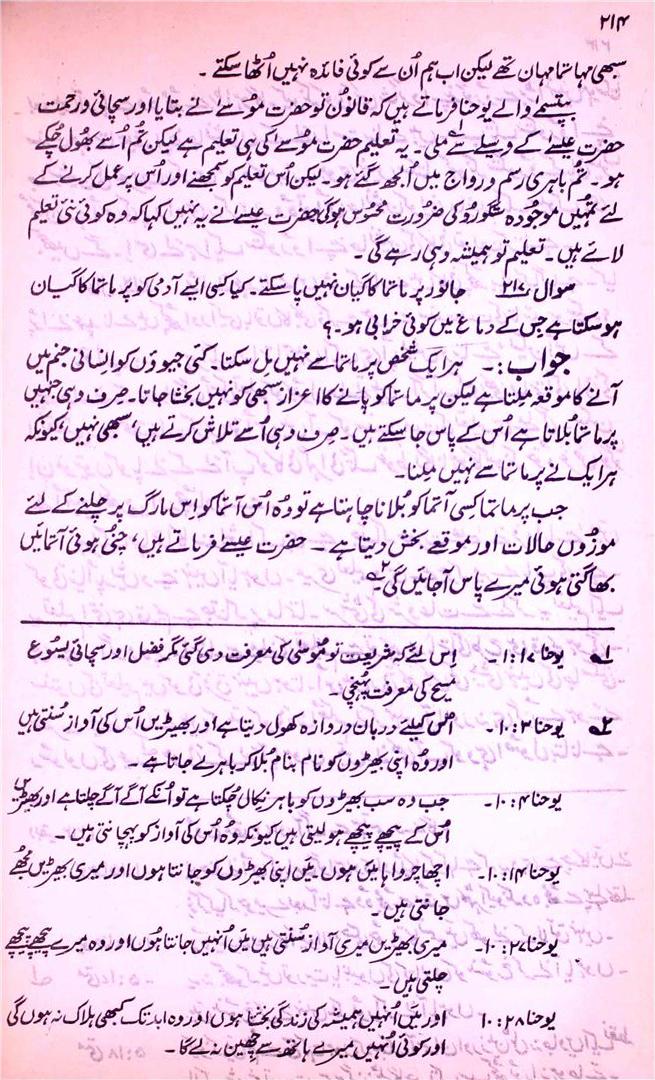 ۲۱۴
سبھی مہاتما مہان تھے لیکن اب ہم اُن سے کوئی فائدہ نہیں اُٹھا سکتے ۔
بپتسمے والے یوحنا فرماتے ہیں کہ قانوُن تو حضرت موُسےٰ نے بتایا اور سچائی و رحمت
حضرت عیسےٰ کے وسیلے سے ملی۔ یہ تعلیم حضرت موُسےٰ کی ہی تعلیم ہے لیکن تُم اُسے بھوُل چکے
ہو ۔ تُم باہری رسم و رواج میں اُلجھ گئے ہو۔ لیکن اُس تعلیم کو سمجھنے اور اُس پر عمل کرنے کے
لئے تمہیں موجوُدہ ستگورو کی ضرورت محسُوس ہوگی حضرت عیسےٰ نے یہ نہیں کہا کہ وہ کوئی نئی تعلیم
لائے ہیں ۔ تعلیم تو ہمیشہ وہی رہے گی ۔
سوال ۲۱۷، جانور پرماتما کا گیان نہیں پا سکتے ۔ کیا کسی ایسے آدمی کو پرماتما کا گیان
ہو سکتا ہے جس کے دماغ میں کوئی خرابی ہو ۔ ؟
جواب :۔ ہر ایک شخص پرماتما سے نہیں مل سکتا۔ کئی جیوؤں کو انسانی جنم میں
آنے کا موقعہ ملتا ہے لیکن پرماتما کو پانے کا اعزاز سبھی کو نہیں بخشا جاتا۔ صرف وہی جنہیں
پرماتما بُلاتا ہے اُس کے پاس جا سکتے ہیں ۔ صرف وہی اُسے تلاش کرتے ہیں، سبھی نہیں، کیونکہ
ہر ایک نے پرماتما سے نہیں ملنا۔
جب پرماتما کسی آتما کو بُلانا چاہتا ہے تو وُہ اُس آتما کو اِس مارگ پر چلنے کے لئے
موزوُں حالات اور موقعے بخش دیتا ہے ۔ حضرت عیسےٰ فرماتے ہیں، چنُی ہوئی آتمائیں
بھاگتی ہوئی میرے پاس آجائیں گی۔۲
۱؎ یوحنا ۱:۱۷۔ اِس لئے کہ شریعت تو مُوسٰی کی معرفت دی گئی مگر فضل اور سچائی یسوُع
مسیح کی معرفت پہنچی ۔
۲؎ یوحنا ۱۰:۳۔ اُس کیلئے دربان دروازہ کھول دیتا ہے اور بھیڑیں اُس کی آواز سُنتی ہیں
اور وُہ اپنی بھیڑوں کو نام بنام بُلا کر باہر لے جاتا ہے ۔
یوحنا ۱۰:۴۔ جب وہ سب بھیڑوں کو باہر نکال چُکتا ہے تو اُنکے آگے آگے چلتا ہے اور بھیڑیں
اُس کے پیچھے پیچھے ہو لیتی ہیں کیونکہ وُہ اُس کی آواز کو پہچانتی ہیں ۔
یوحنا ۱۰:۱۴۔ اچھا چرواہا میں ہوں ۔ میَں اپنی بھیڑوں کو جانتا ہوں اور میری بھیڑیں مُجھے
جانتی ہیں ۔
یوحنا ۱۰:۲۷۔ میری بھیڑیں میری آواز سُنتی ہیں میَں اُنہیں جانتا ہوُں اور وہ میرے پیچھے پیچھے
چلتی ہیں ۔
یوحنا ۱۰:۲۸ اور میَں اُنہیں ہمیشہ کی زندگی بخشتا ہوں اور وہ ابد تک کبھی ہلاک نہ ہوں گی
اور کوئی اُنہیں میرے ہاتھ سے چھین نہ لے گا ۔